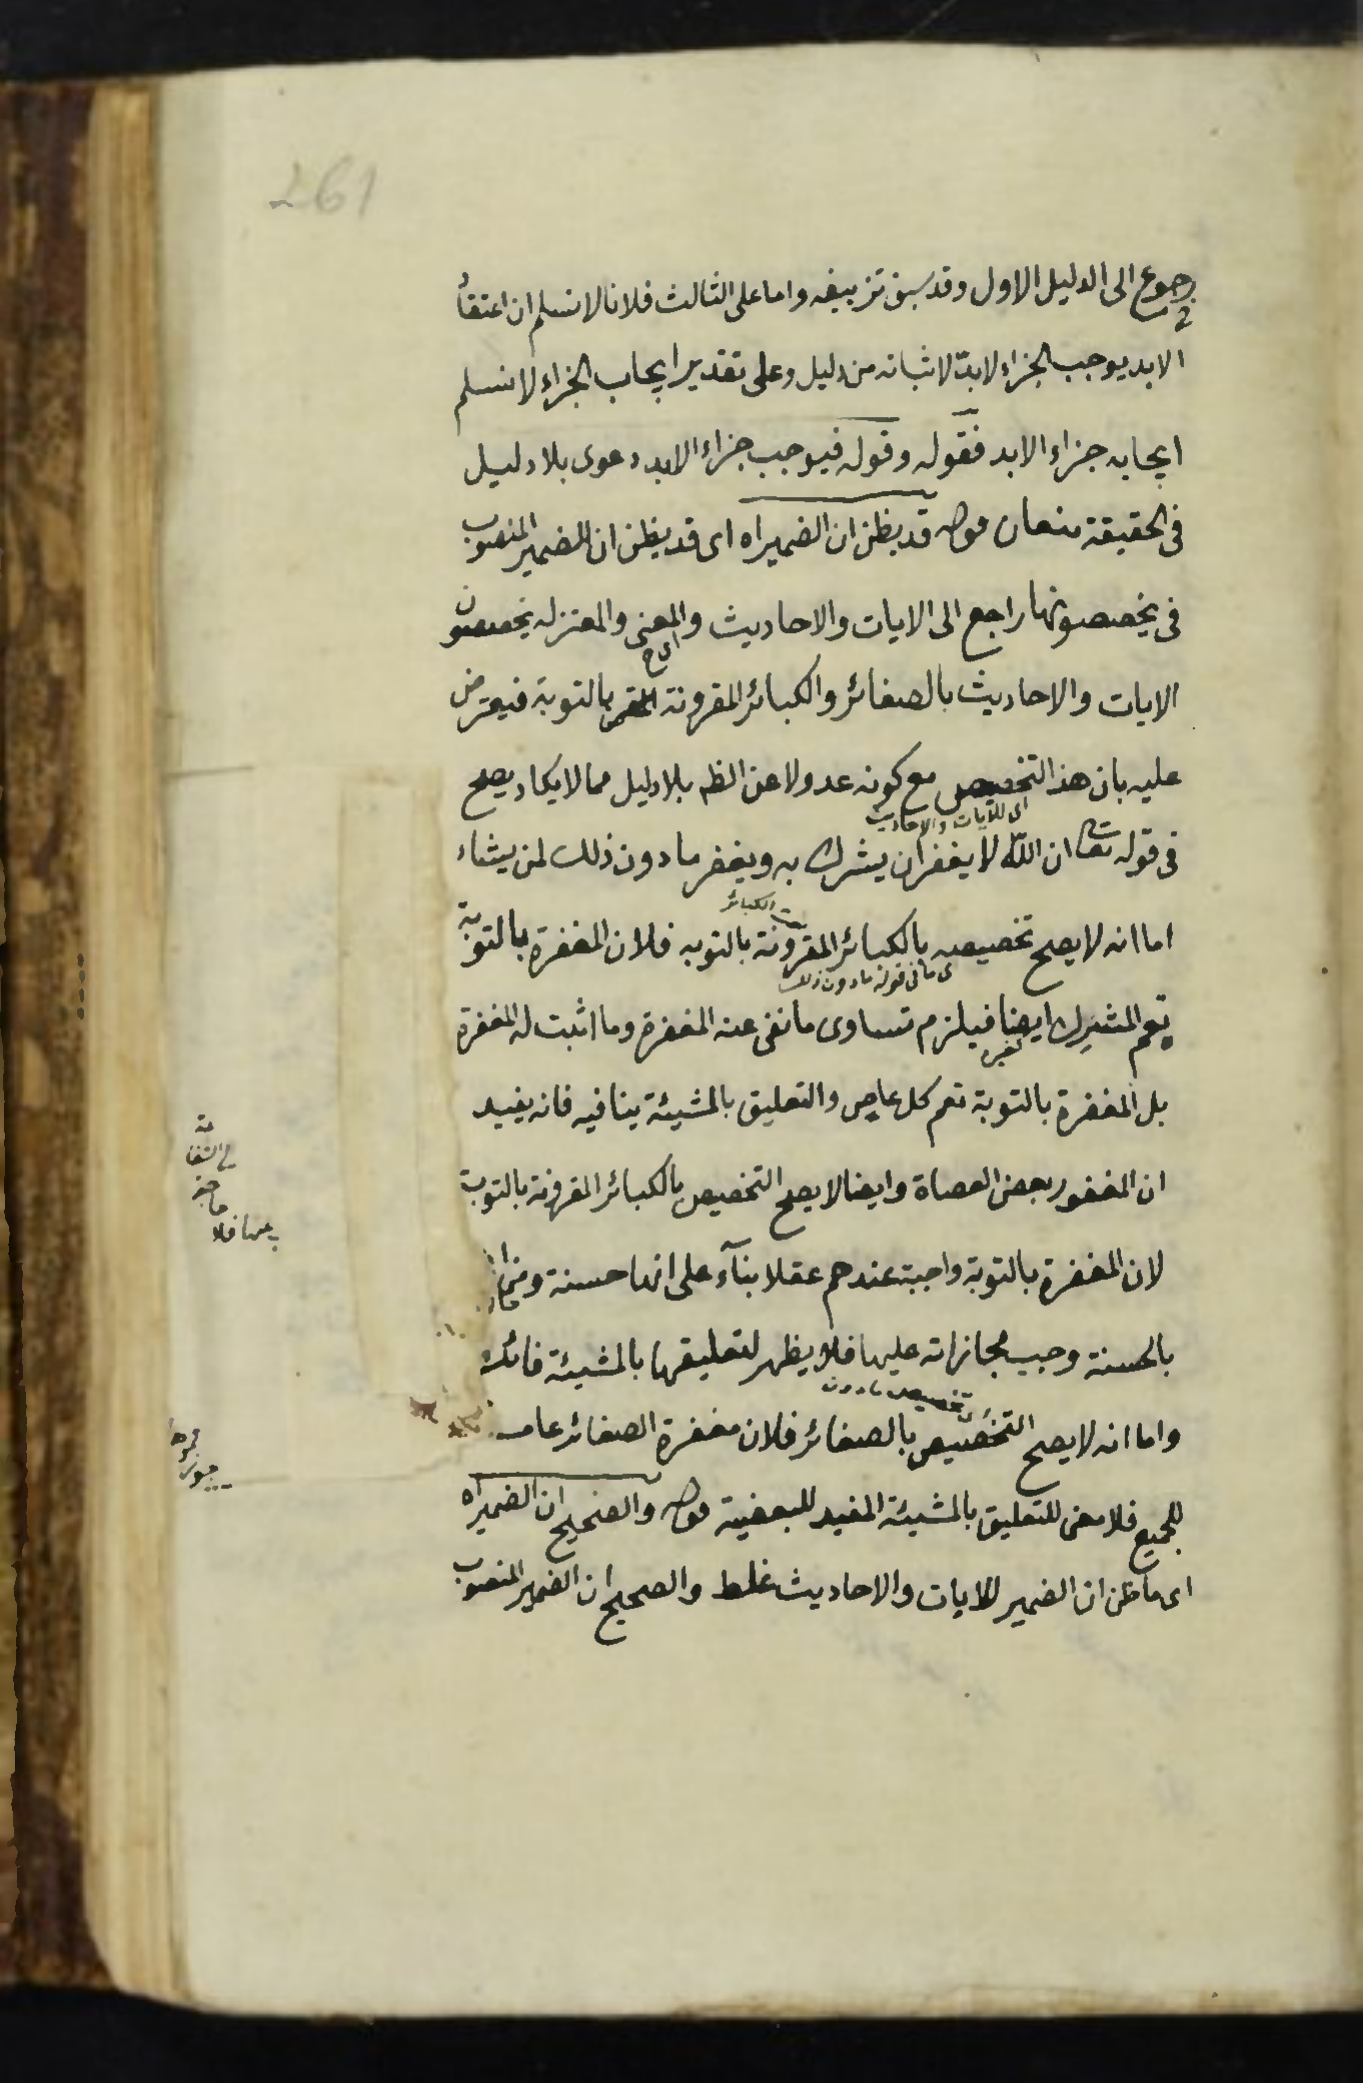 261
رجوع الى الدليل الاول وقد سبق تزييفه واما على الثالث فلانا لانسلم ان اعتقاد
الابد يوجب الجزاء لابدّ لاثباته من دليل وعلى تقدير ايجاب الجزاء لانسلم
ايجابه جزاء الابد فقوله وقوله فيوجب جزاء الابد دعوى بلا دليل
فى الحقيقة منعان قوله قد يظن ان الضمير اه اى قد يظن ان الضمير المنصوب
فى يخصصونها راجع الى الايات والاحاديث والمعنى والمعتزله يخصصون
الايات والاحاديث بالصغائر والكبائر المقرونة بالتوبة فيعترض
عليه بان هذا التخصيص مع كونه عدولا عن الظ بلا دليل مما لايكاد يصح
اى للآيات والاحاديث
فى قوله تعا ان الله لا يغفر ان يشرك به ويغفر ما دون ذلك لمن يشاء
الكبائر
اما انه لا يصح تخصيصه بالكبائر المقرونة بالتوبه فلان المغفرة بالتوبة
اى ما فى قوله ما دون ذلك
تعم المشرك ايضا فيلزم تساوى ما نفى عنه المغفرة وما اثبت له المغفرة
بل المغفرة بالتوبة تعم كل عاص والتعليق بالمشيئة ينافيه فانه يفيد
ان المغفور بعض العصاة وايضا لا يصح التخصيص بالكبائر المقرونة بالتوبة
لان المغفرة بالتوبة واجبة عندهم عقلا بنآء على انها حسنة ومن
بالحسنة وجب مجازاته عليها فلا يظهر لتعليقها بالمشيئة فائدة
تخصيص ما دون
واما انه لا يصح التخصيص بالصغائر فلان مغفرة الصغائر عامة
للجميع فلا معنى للتعليق بالمشيئة المفيد للبعضية قوله والصحيح ان الضمير اه
اى ما ظن ان الضمير للايات والاحاديث غلط والصحيح ان الضمير المنصوب